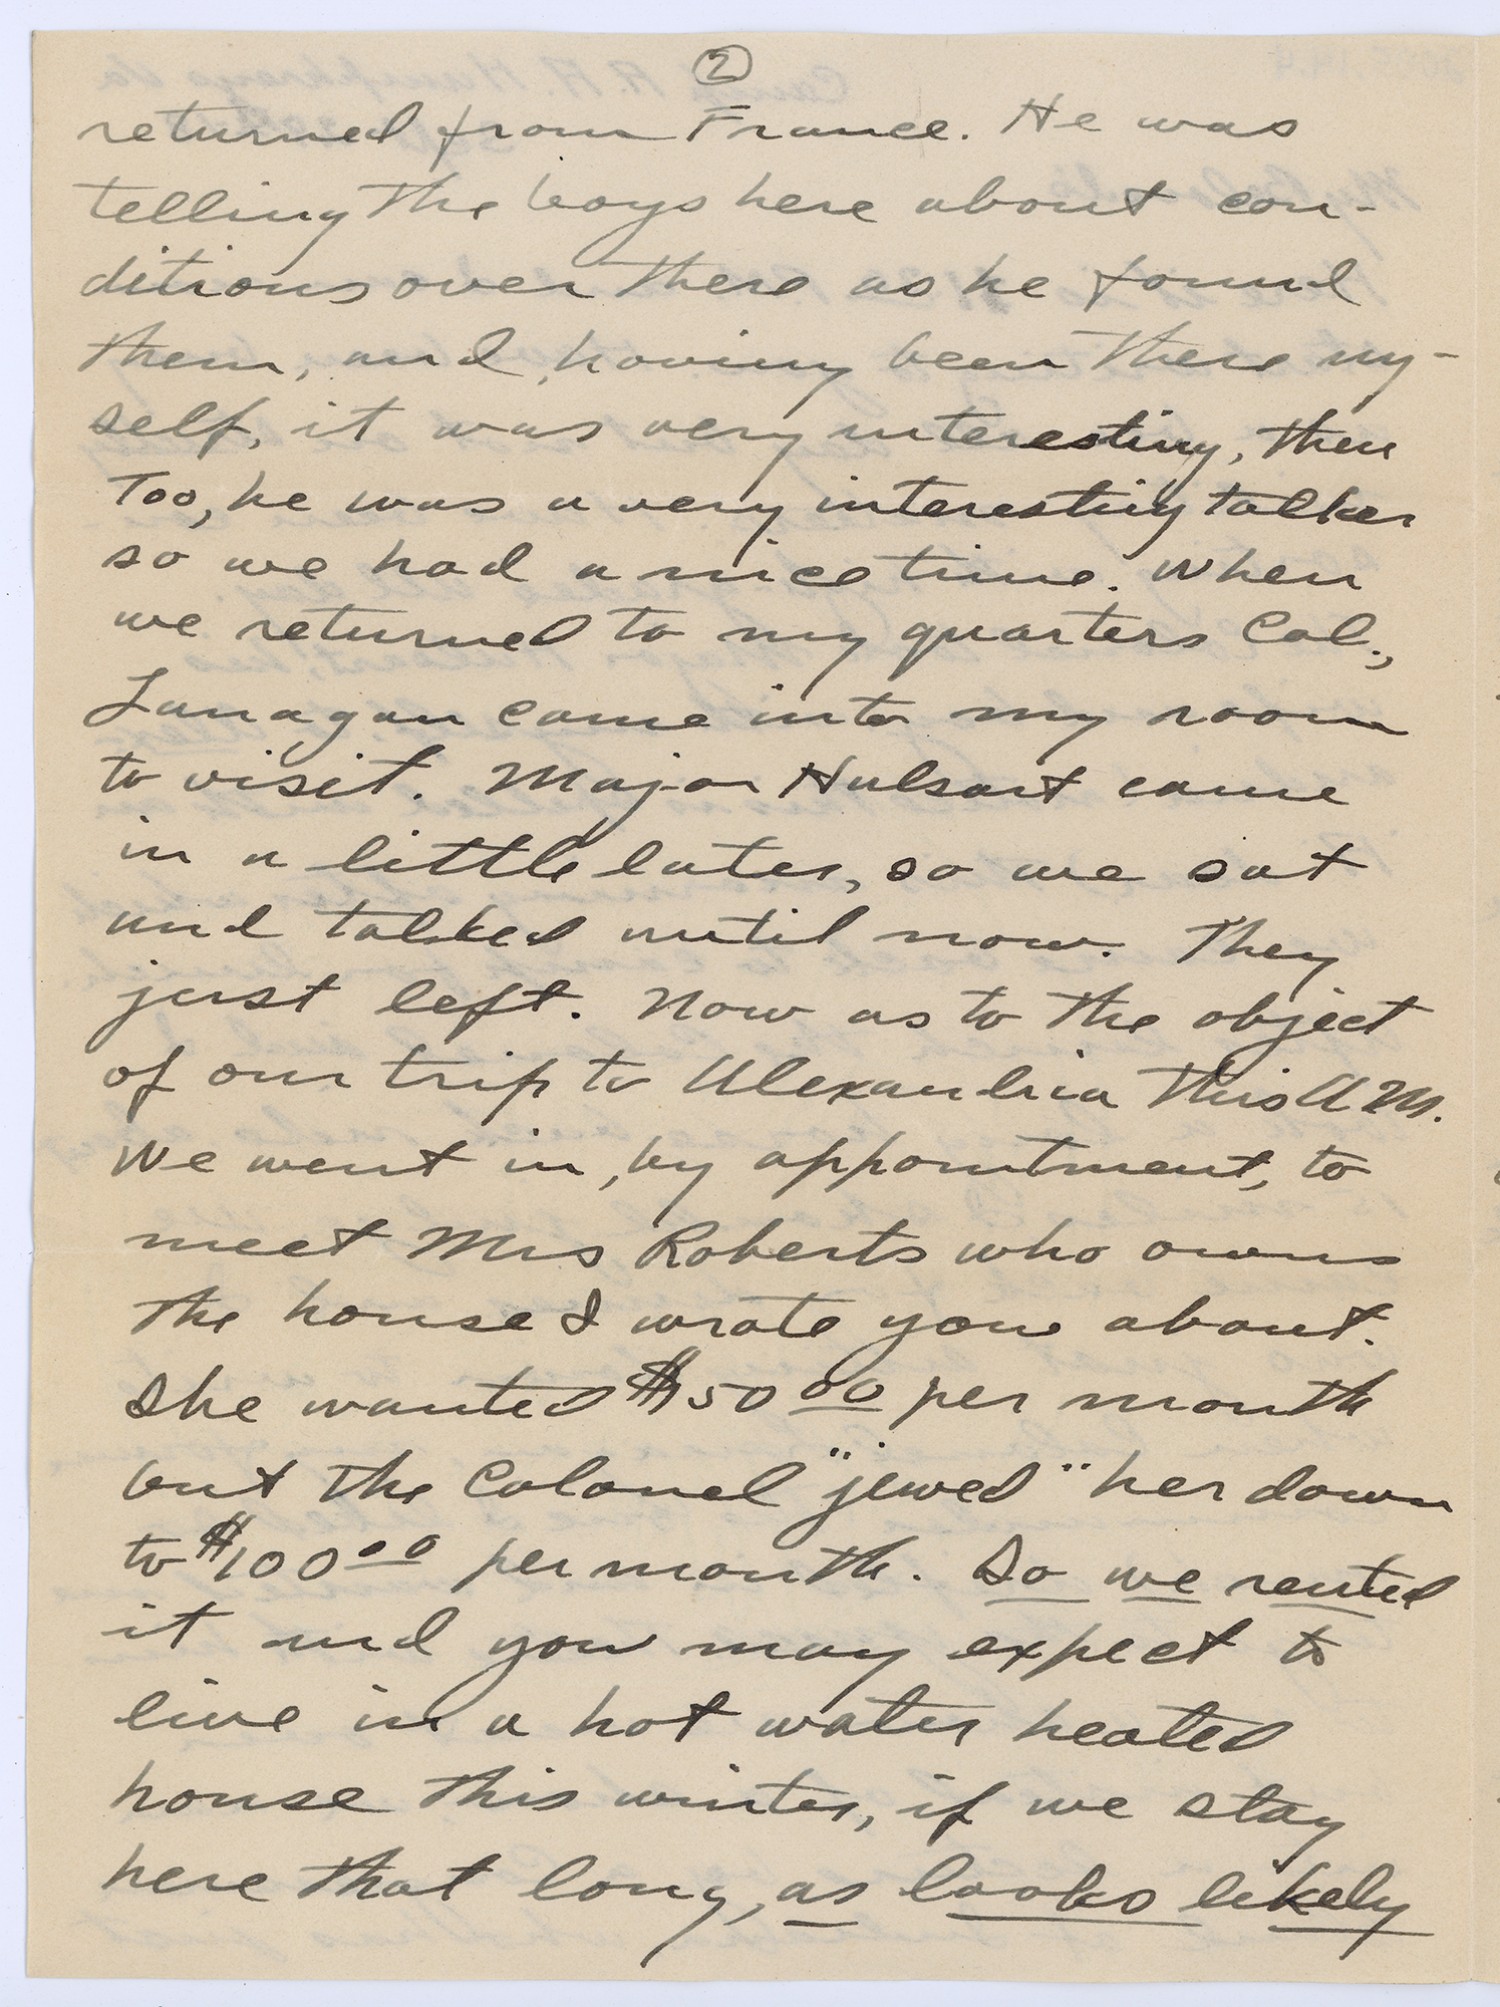 2
returned from France. He was
telling the boys here about con-
ditions over there as he found
them, and, having been there my-
self, it was very interesting, then
too, he was a very interesting talker
so we had a nice time. When
we returned to my quarters Col.,
Lanagan came into my room
to visit. Major Hulsart came
in a little later, so we sat
and talked until now. They
just left. Now as to the object
of our trip to Alexandria this A M.
We went in, by appointment, to
meet Mrs Roberts who owns
the house I wrote you about.
She wanted $150 00 per month
but the Colonel "jewed" her down
to $100 00 per month. So we rented
it and you may expect to
live in a hot water heated
house this winter, if we stay
here that long, as looks likely